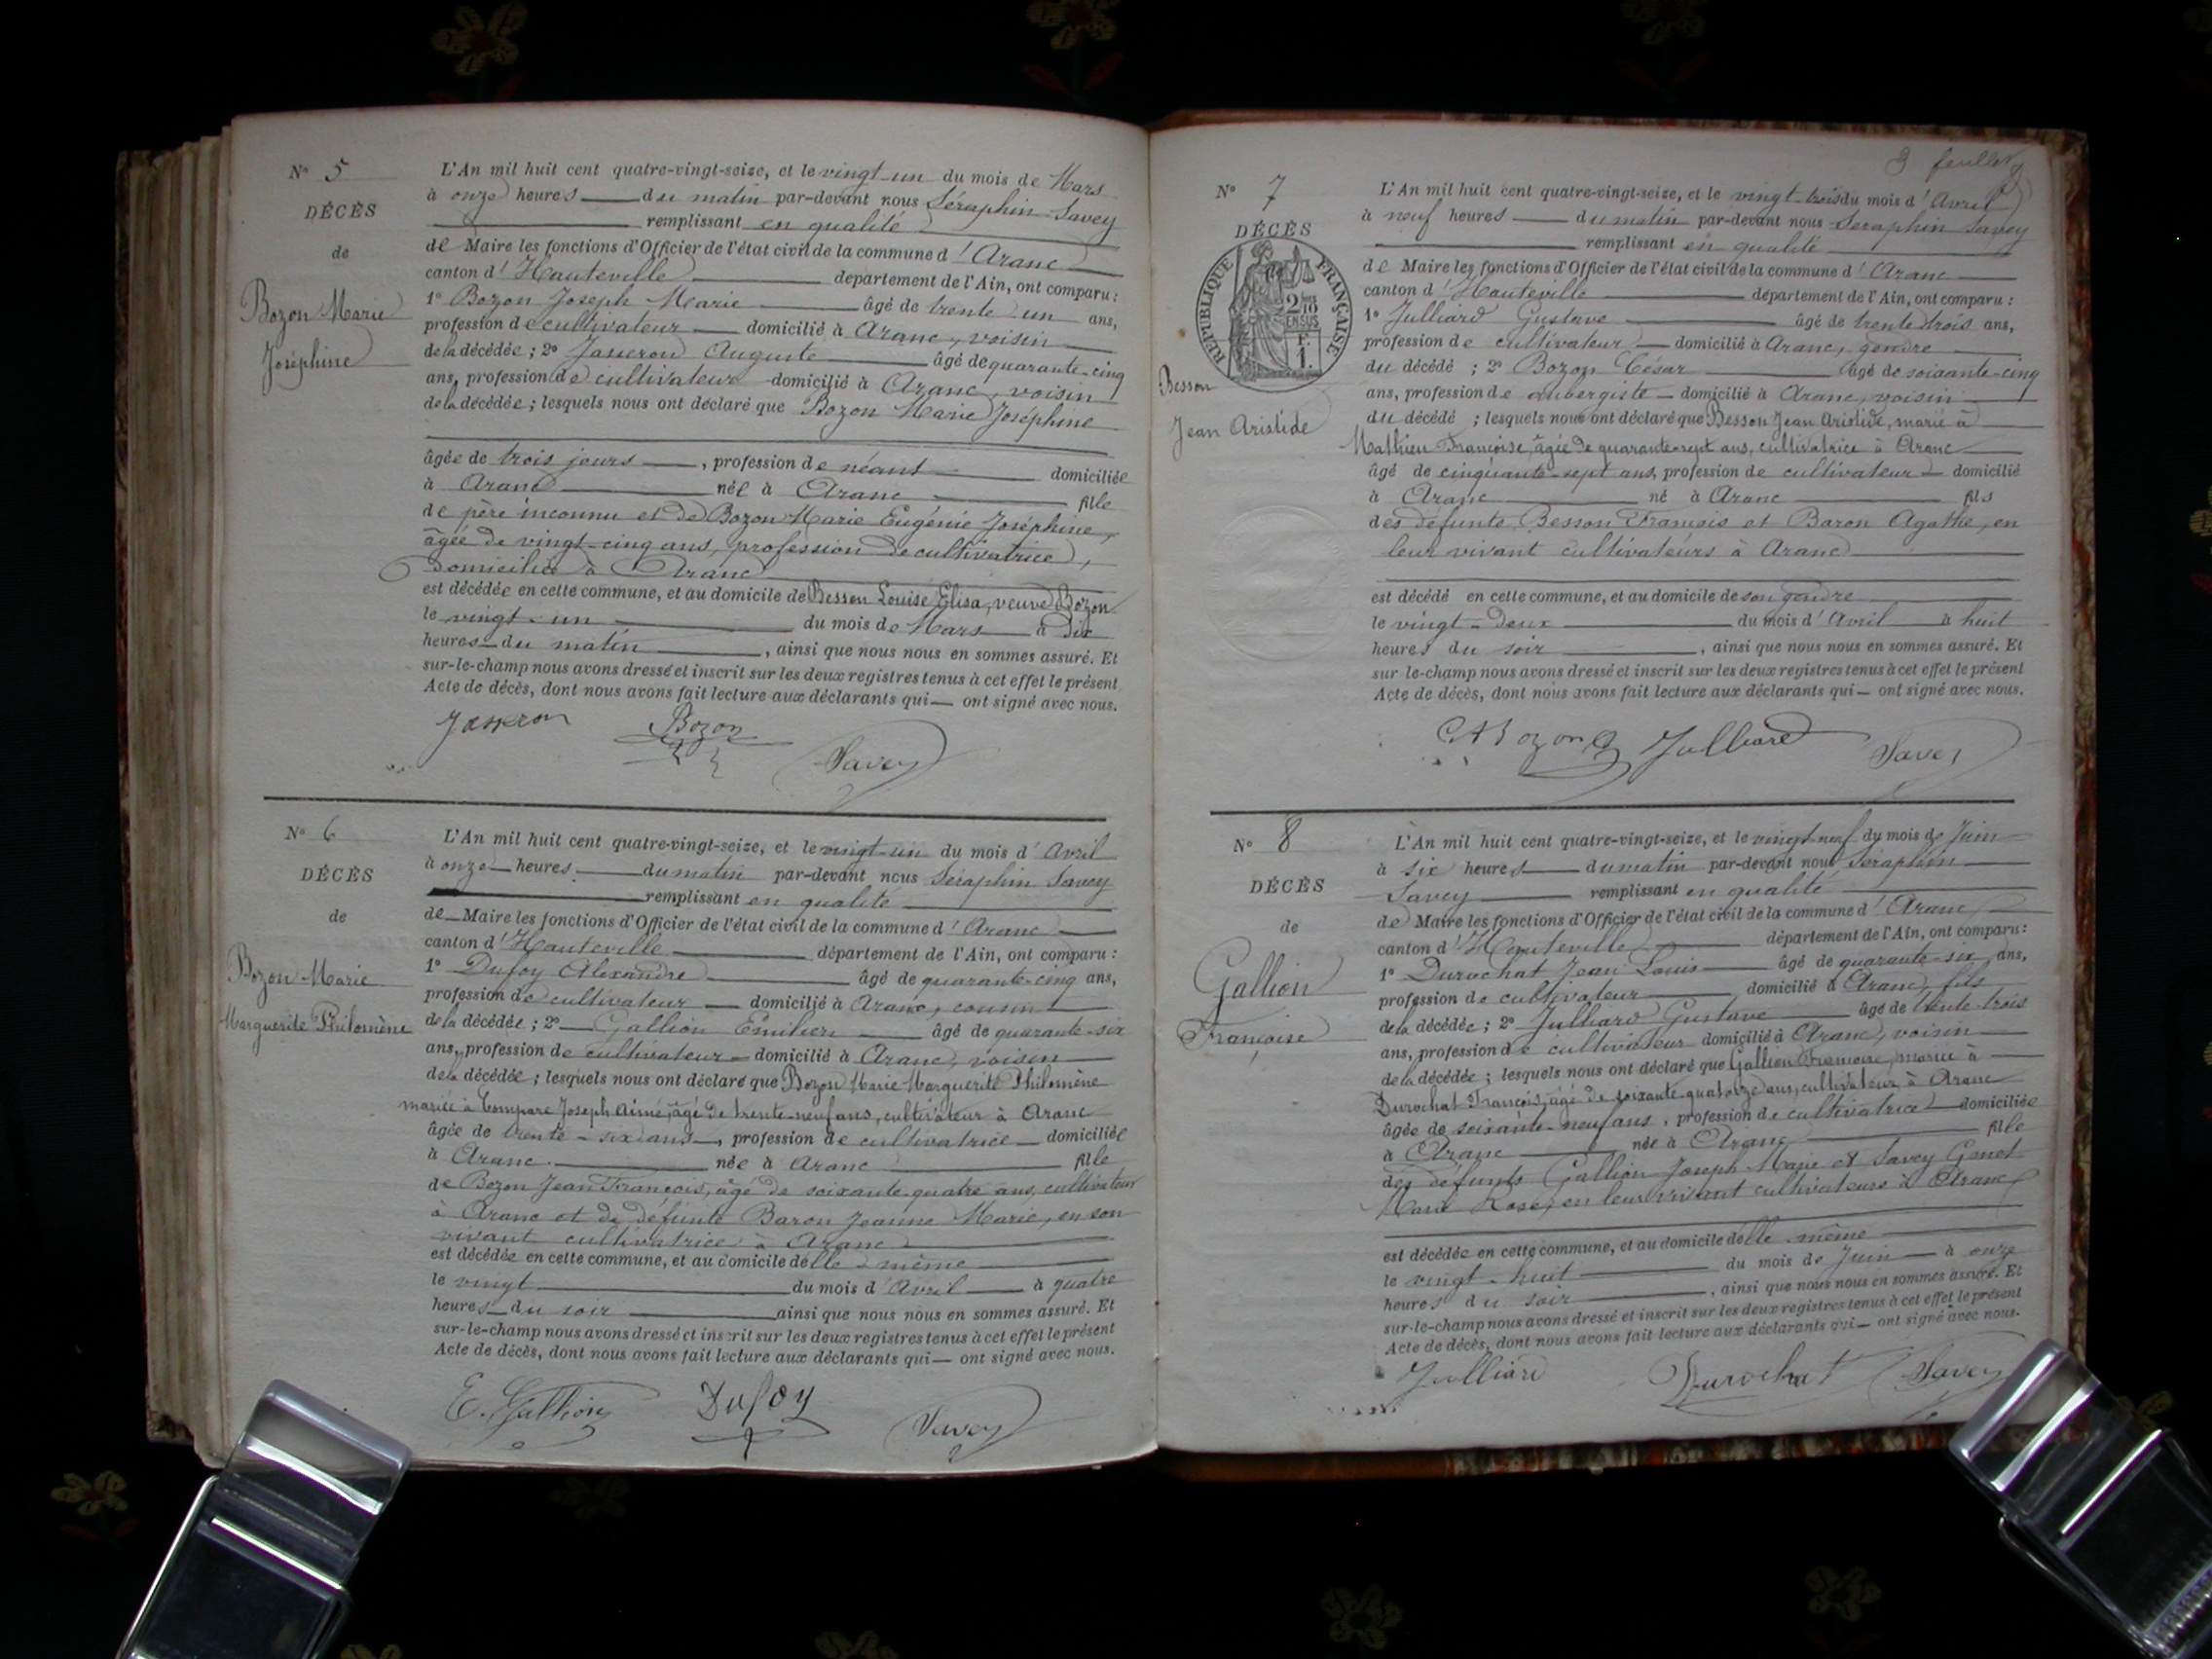 N° 5
DÉCÈS
de
Bozon Marie
Joséphine
L'An mil huit cent quatre-vingt-seize, et le vingt-un du mois de Mars
à onze heures du matin par-devant nous Séraphin Savey
remplissant en qualité
de Maire les fonctions d'Officier de l'état civil de la commune d'Aranc
canton d'Hauteville département de l'Ain, ont comparu :
1° Bozon Joseph Marie âgé de trente un ans,
profession de cultivateur domicilié à Aranc, voisin
de la décédée ; 2° Jasseron Auguste âgé de quarante-cinq
ans, profession de cultivateur domicilié à Aranc, voisin
de la décédée ; lesquels nous ont déclaré que Bozon Marie Joséphine
âgée de trois jours, profession de néant domiciliée
à Aranc née à Aranc fille
de père inconnu et de Bozon Marie Eugénie Joséphine,
âgée de vingt-cinq ans, profession de cultivatrice,
domiciliée à Aranc
est décédée en cette commune, et au domicile de Besson Louise Elisa, veuve Bozon
le vingt-un du mois de Mars à dix
heures du matin, ainsi que nous nous en sommes assuré. Et
sur-le-champ nous avons dressé et inscrit sur les deux registres tenus à cet effet le présent
Acte de décès, dont nous avons fait lecture aux déclarants qui — ont signé avec nous.
Jasseron Bozon Savey
N° 6
DÉCÈS
de
Bozon Marie
Marguerite Philomène
L'An mil huit cent quatre-vingt-seize, et le vingt-un du mois d'Avril
à onze heures du matin par-devant nous Séraphin Savey
remplissant en qualité
de Maire les fonctions d'Officier de l'état civil de la commune d'Aranc
canton d'Hauteville département de l'Ain, ont comparu :
1° Dufoy Alexandre âgé de quarante-cinq ans,
profession de cultivateur domicilié à Aranc, cousin
de la décédée ; 2° Gallion Emilien âgé de quarante-six
ans, profession de cultivateur domicilié à Aranc, voisin
de la décédée ; lesquels nous ont déclaré que Bozon Marie Marguerite Philomène
mariée à Compare Joseph Aimé, âgé de trente-neuf ans, cultivateur à Aranc
âgée de trente-six ans, profession de cultivatrice domiciliée
à Aranc née à Aranc fille
de Bozon Jean François, âgé de soixante-quatre ans, cultivateur
à Aranc et de défunte Baron Jeanne Marie, en son
vivant cultivatrice à Aranc
est décédée en cette commune, et au domicile d'elle-même
le vingt du mois d'Avril à quatre
heures du soir ainsi que nous nous en sommes assuré. Et
sur-le-champ nous avons dressé et inscrit sur les deux registres tenus à cet effet le présent
Acte de décès, dont nous avons fait lecture aux déclarants qui — ont signé avec nous.
E. Gallion Dufoy Savey
3 feuillet
N° 7
DÉCÈS
RÉPUBLIQUE FRANÇAISE
2/10 EN SUS
F. 1.
Besson
Jean Aristide
L'An mil huit cent quatre-vingt-seize, et le vingt-trois du mois d'Avril
à neuf heures du matin par-devant nous Seraphin Savey
remplissant en qualité
de Maire les fonctions d'Officier de l'état civil de la commune d'Aranc
canton d'Hauteville département de l'Ain, ont comparu :
1° Julliard Gustave âgé de trente trois ans,
profession de cultivateur domicilié à Aranc, gendre
du décédé ; 2° Bozon César âgé de soixante-cinq
ans, profession de aubergiste domicilié à Aranc, voisin
du décédé ; lesquels nous ont déclaré que Besson Jean Aristide, marié à
Mathieu Françoise, âgée de quarante-sept ans, cultivatrice à Aranc
âgé de cinquante-sept ans, profession de cultivateur domicilié
à Aranc né à Aranc fils
des défunts Besson François et Baron Agathe, en
leur vivant cultivateurs à Aranc
est décédé en cette commune, et au domicile de son gendre
le vingt-deux du mois d'Avril à huit
heures du soir, ainsi que nous nous en sommes assuré. Et
sur-le-champ nous avons dressé et inscrit sur les deux registres tenus à cet effet le présent
Acte de décès, dont nous avons fait lecture aux déclarants qui — ont signé avec nous.
Bozon Julliard Savey
N° 8
DÉCÈS
de
Gallion
Françoise
L'An mil huit cent quatre-vingt-seize, et le vingt-neuf du mois de Juin
à six heures du matin par-devant nous Séraphin
Savey remplissant en qualité
de Maire les fonctions d'Officier de l'état civil de la commune d'Aranc
canton d'Hauteville département de l'Ain, ont comparu :
1° Durochat Jean Louis âgé de quarante-six ans,
profession de cultivateur domicilié à Aranc, fils
de la décédée ; 2° Julliard Gustave âgé de trente-trois
ans, profession de cultivateur domicilié à Aranc, voisin
de la décédée ; lesquels nous ont déclaré que Gallion Françoise, mariée à
Durochat François, âgé de soixante-quatorze ans, cultivateur à Aranc
âgée de soixante-neuf ans, profession de cultivatrice domiciliée
à Aranc née à Aranc fille
des défunts Gallion Joseph Marie et Savey Genet
Marie Rose, en leur vivant cultivateurs à Aranc
est décédée en cette commune, et au domicile d'elle même
le vingt-huit du mois de Juin à onze
heures du soir, ainsi que nous nous en sommes assuré. Et
sur-le-champ nous avons dressé et inscrit sur les deux registres tenus à cet effet le présent
Acte de décès, dont nous avons fait lecture aux déclarants qui — ont signé avec nous.
Julliard Durochat Savey